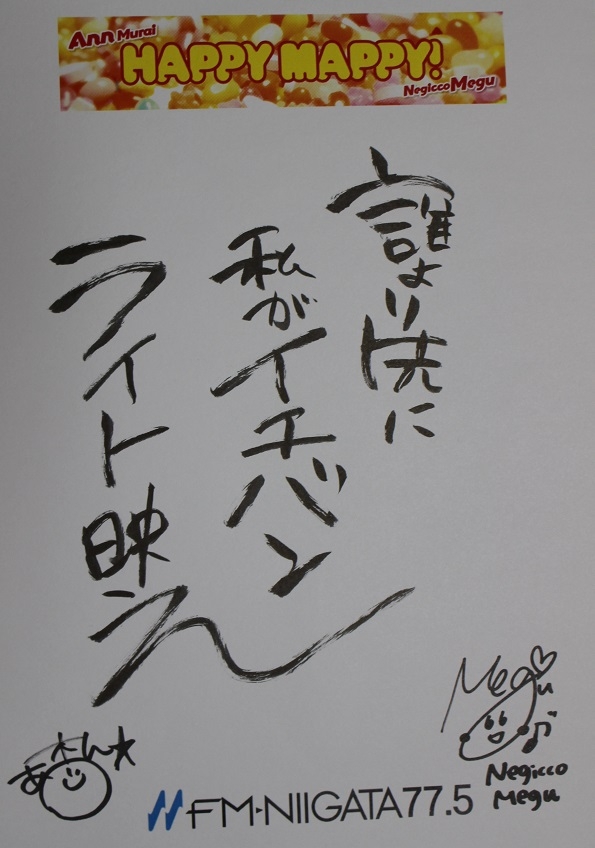 Ann Murai
HAPPY MAPPY!
Negicco Megu
誰より先に
私がイチバン
ライト映え
Megu
あん★
Negicco
Megu
FM-NIIGATA 77.5